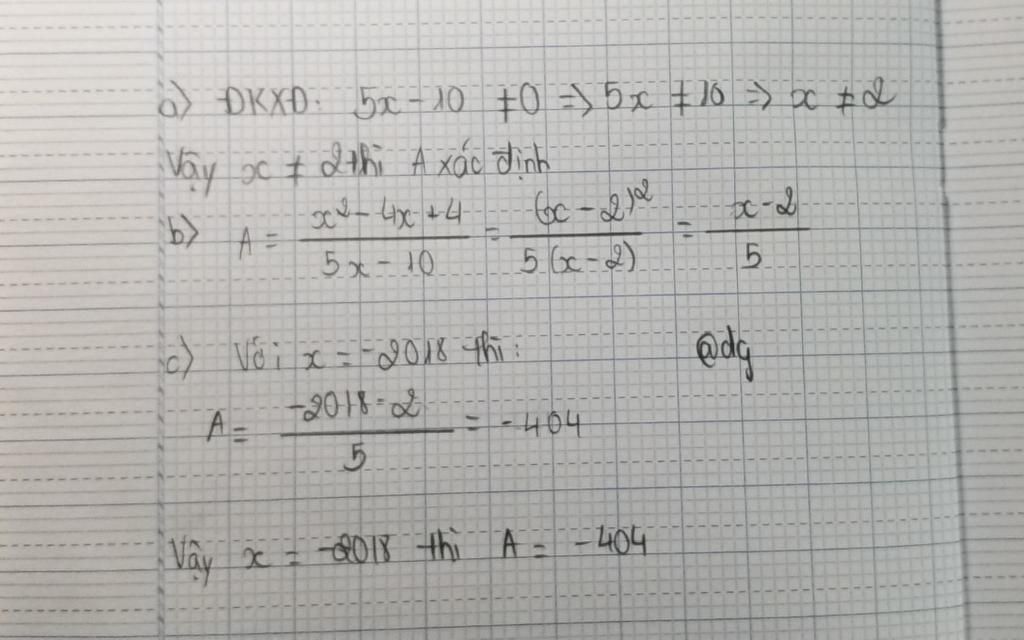 a) ĐKXĐ: 5x - 10 ≠ 0 => 5x ≠ 10 => x ≠ 2
Vậy x ≠ 2 thì A xác định
b) A = (x² - 4x + 4)/(5x - 10) = (x - 2)²/(5(x - 2)) = (x - 2)/5
c) Với x = -2018 thì: @dg
A = (-2018 - 2)/5 = -404
Vậy x = -2018 thì A = -404